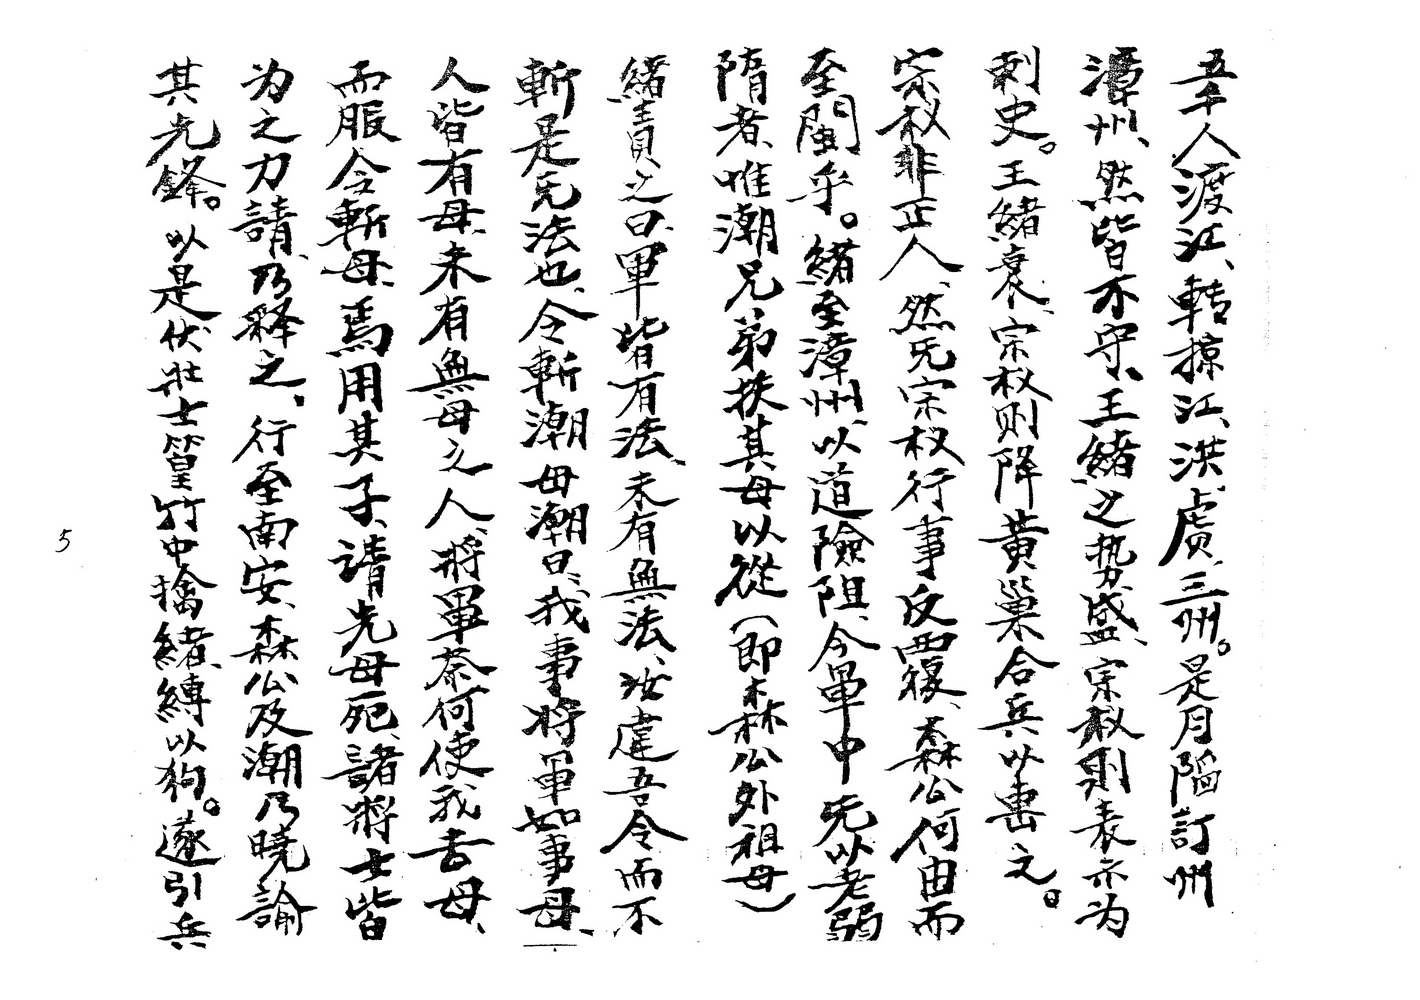 五千人渡江、轉掠江、洪、虔、三州。是月陷訂州
漳州、然皆不守、王緒之势盛、宗权則表亦为
刺史。王緒衰、宗权则降黃巢合兵以圉之。
宗权非正人、然旡宗权行事反覆、森公何由而
至閩乎。緒至漳州、以道險阻、令軍中旡以老弱
隋者、唯潮兄弟扶其母以從（即森公外祖母）
緒責之曰、軍皆有法、未有無法、汝違吾令而不
斬是旡法也、令斬潮母潮曰、我事將軍如事母、
人皆有母、未有無母之人、將軍奈何使我去母、
而服令斬母、焉用其子、請先母死、諸將士皆
为之力請、乃释之、行至南安、森公及潮乃曉諭
其先鋒。以是伏壯士篁竹中擒緒、縛以狥。遂引兵
5